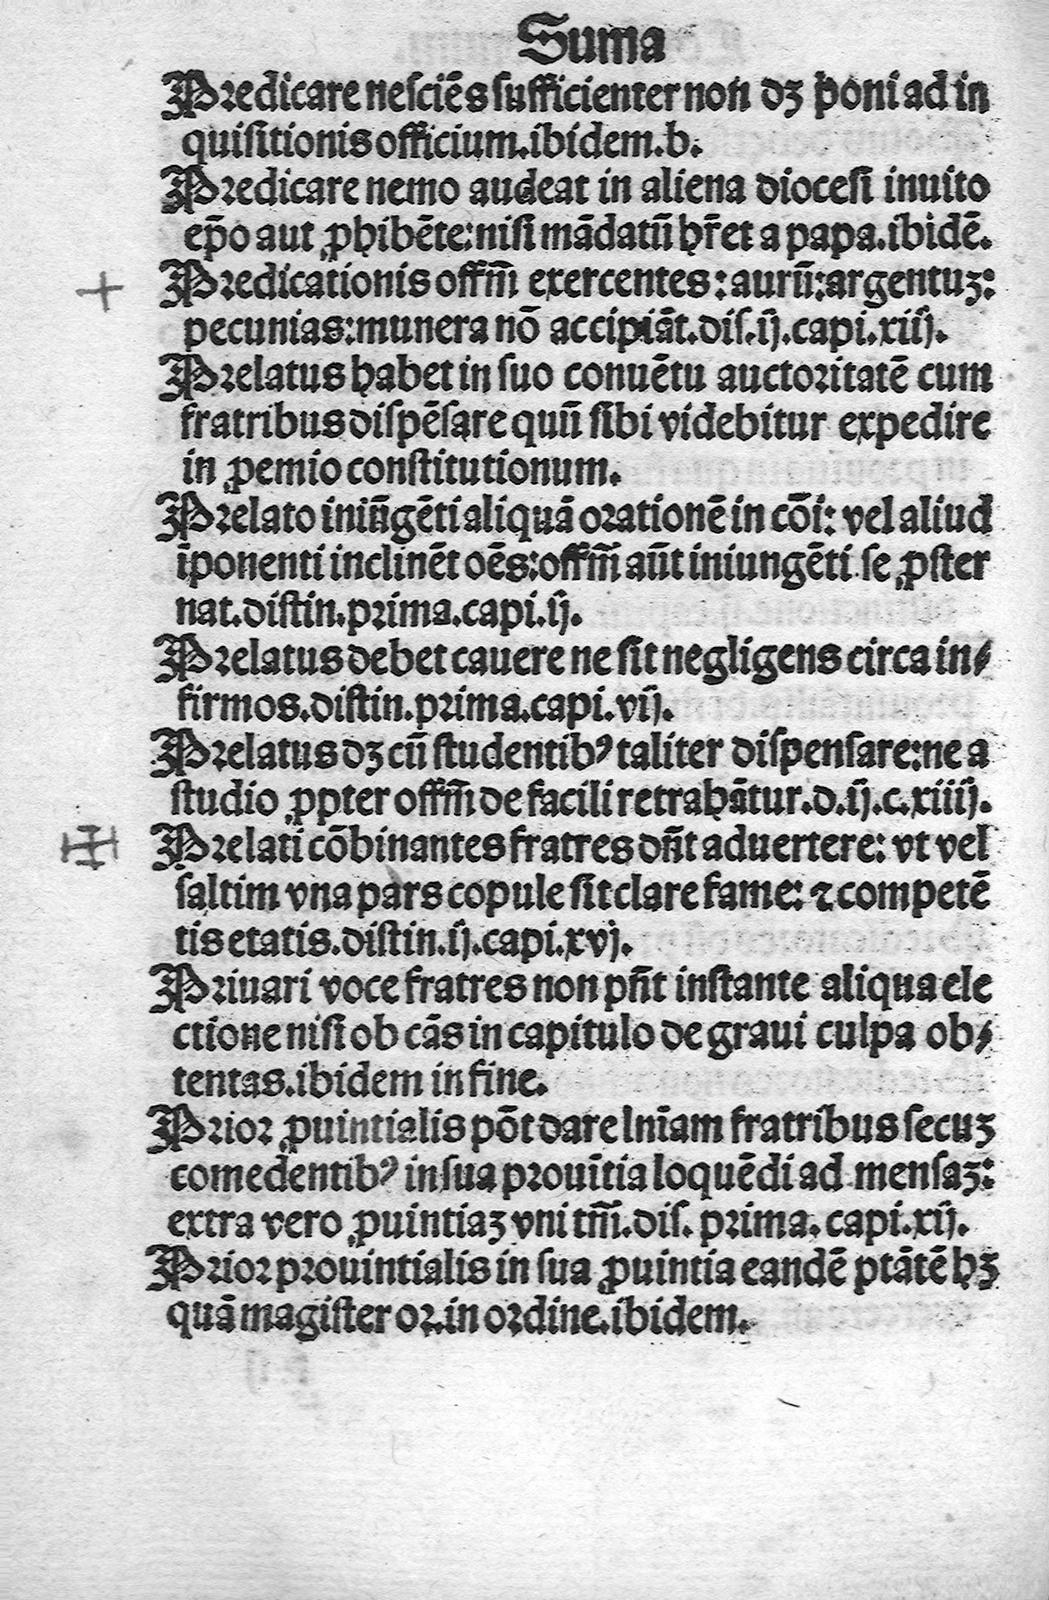 Suma
Predicare nesciēs sufficienter non dꝫ poni ad in
quisitionis officium.ibidem.b.
Predicare nemo audeat in aliena diocesi inuito
ep̄o aut ꝓhibēte:nisi mādatū hr̄et a papa.ibidē.
Predicationis offm̄ exercentes:aurū:argentuꝫ:
pecunias:munera nō accipiāt.dis.ij.capi.xiij.
Prelatus habet in suo conuētu auctoritatē cum
fratribus dispēsare quū sibi videbitur expedire
in ꝓemio constitutionum.
Prelato iniūgēti aliquā orationē in cōi: vel aliud
īponenti inclinēt oēs:offm̄ aūt iniungēti se ꝓster
nat.distin.prima.capi.ij.
Prelatus debet cauere ne sit negligens circa in⸗
firmos.distin.prima.capi.vij.
Prelatus dꝫ cū studentibꝰ taliter dispensare:ne a
studio ꝓpter offm̄ de facili retrahātur.d.ij.c.xiiij.
Prelati cōbinantes fratres dn̄t aduertere: vt vel
saltim vna pars copule sit clare fame: ⁊ competē
tis etatis.distin.ij.capi.xvj.
Priuari voce fratres non pn̄t instante aliqua ele
ctione nisi ob cās in capitulo de graui culpa ob⸗
tentas.ibidem in fine.
Prior ꝓuintialis pōt dare lnīam fratribus secuꝫ
comedentibꝰ in sua prouītia loquēdi ad mensaꝫ:
extra vero ꝓuintiaꝫ vni tm̄.dis. prima. capi.xij.
Prior prouintialis in sua ꝓuintia eandē ptātē hꝫ
quā magister or.in ordine.ibidem.